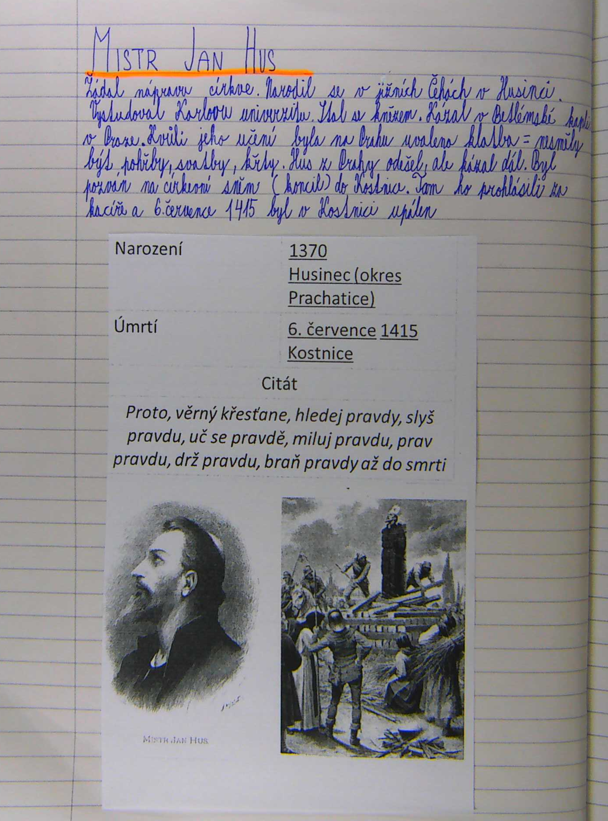 MISTR JAN HUS
Žádal nápravu církve. Narodil se v jižních Čehách v Husinci.
Vystudoval Karlovu univerzitu. Stal se knězem. Kázal v Betlémské kapli
v Praze. Kvůli jeho učení byla na Prahu uvalena klatba = nesměly
být pohřby, svatby, křty. Hus z Prahy odešel, ale kázal dál. Byl
pozván na církevní sněm (koncil) do Kostnice. Tam ho prohlásili za
kacíře a 6. července 1415 byl v Kostnici upálen
Narození 1370
Husinec (okres
Prachatice)
Úmrtí 6. července 1415
Kostnice
Citát
Proto, věrný křesťane, hledej pravdy, slyš
pravdu, uč se pravdě, miluj pravdu, prav
pravdu, drž pravdu, braň pravdy až do smrti
MISTR JAN HUS